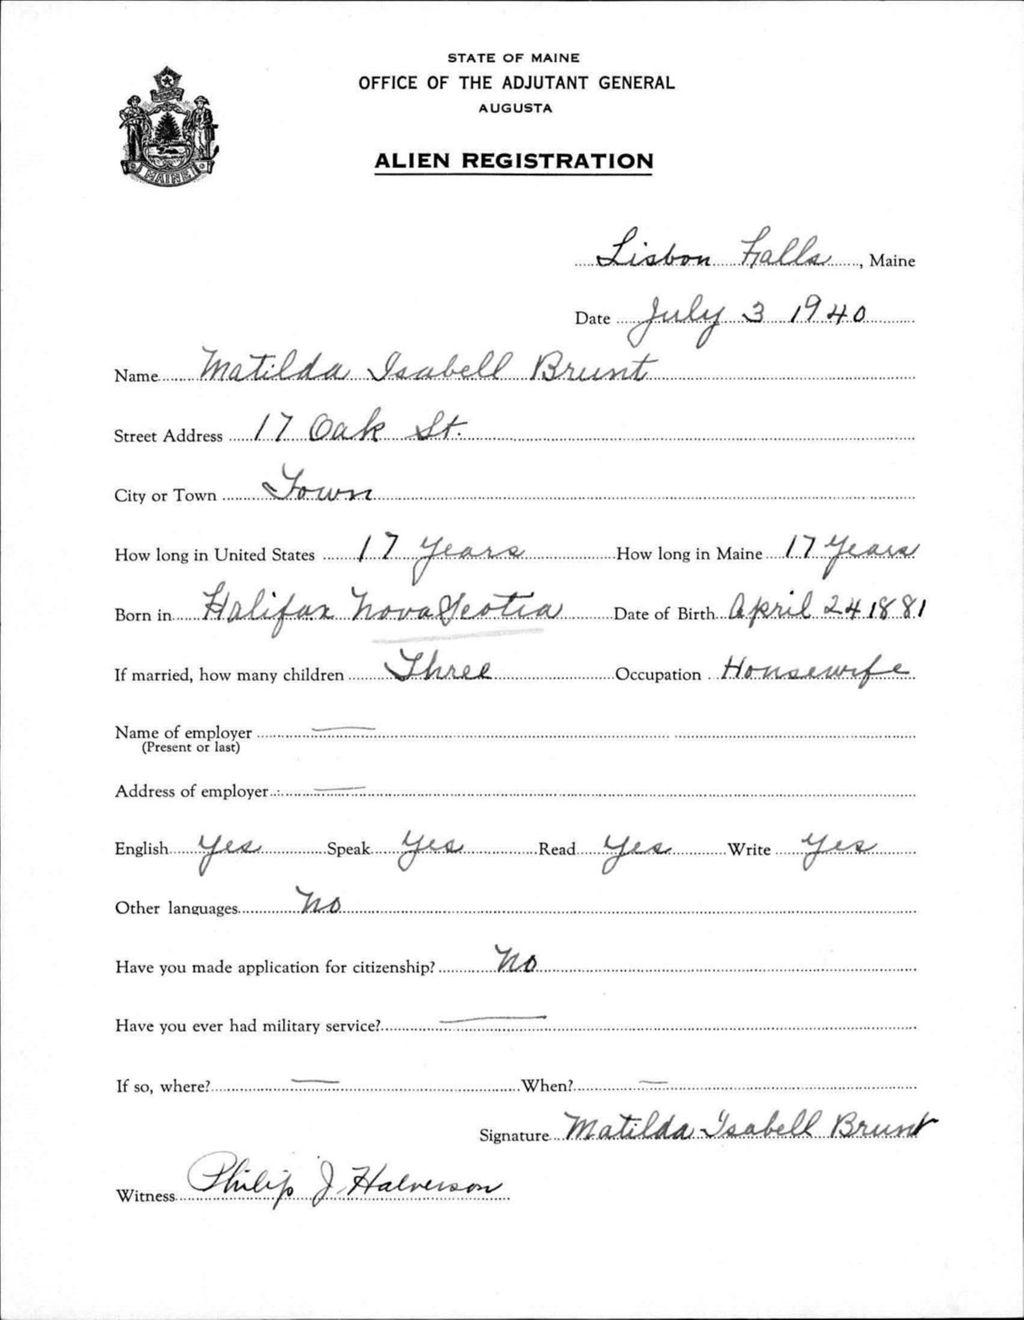 STATE OF MAINE
OFFICE OF THE ADJUTANT GENERAL
AUGUSTA
ALIEN REGISTRATION
MAINE
Lisbon Falls, Maine
Date July 3 1940
Name Matilda Isabell Brunt
Street Address 17 Oak St.
City or Town Town
How long in United States 17 Years How long in Maine 17 Years
Born in Halifax Nova Scotia Date of Birth April 24 1881
If married, how many children Three Occupation Housewife
Name of employer —
(Present or last)
Address of employer —
English Yes Speak Yes Read Yes Write Yes
Other languages No
Have you made application for citizenship? No
Have you ever had military service? —
If so, where? — When? —
Signature Matilda Isabell Brunt
Witness Philip J. Halverson